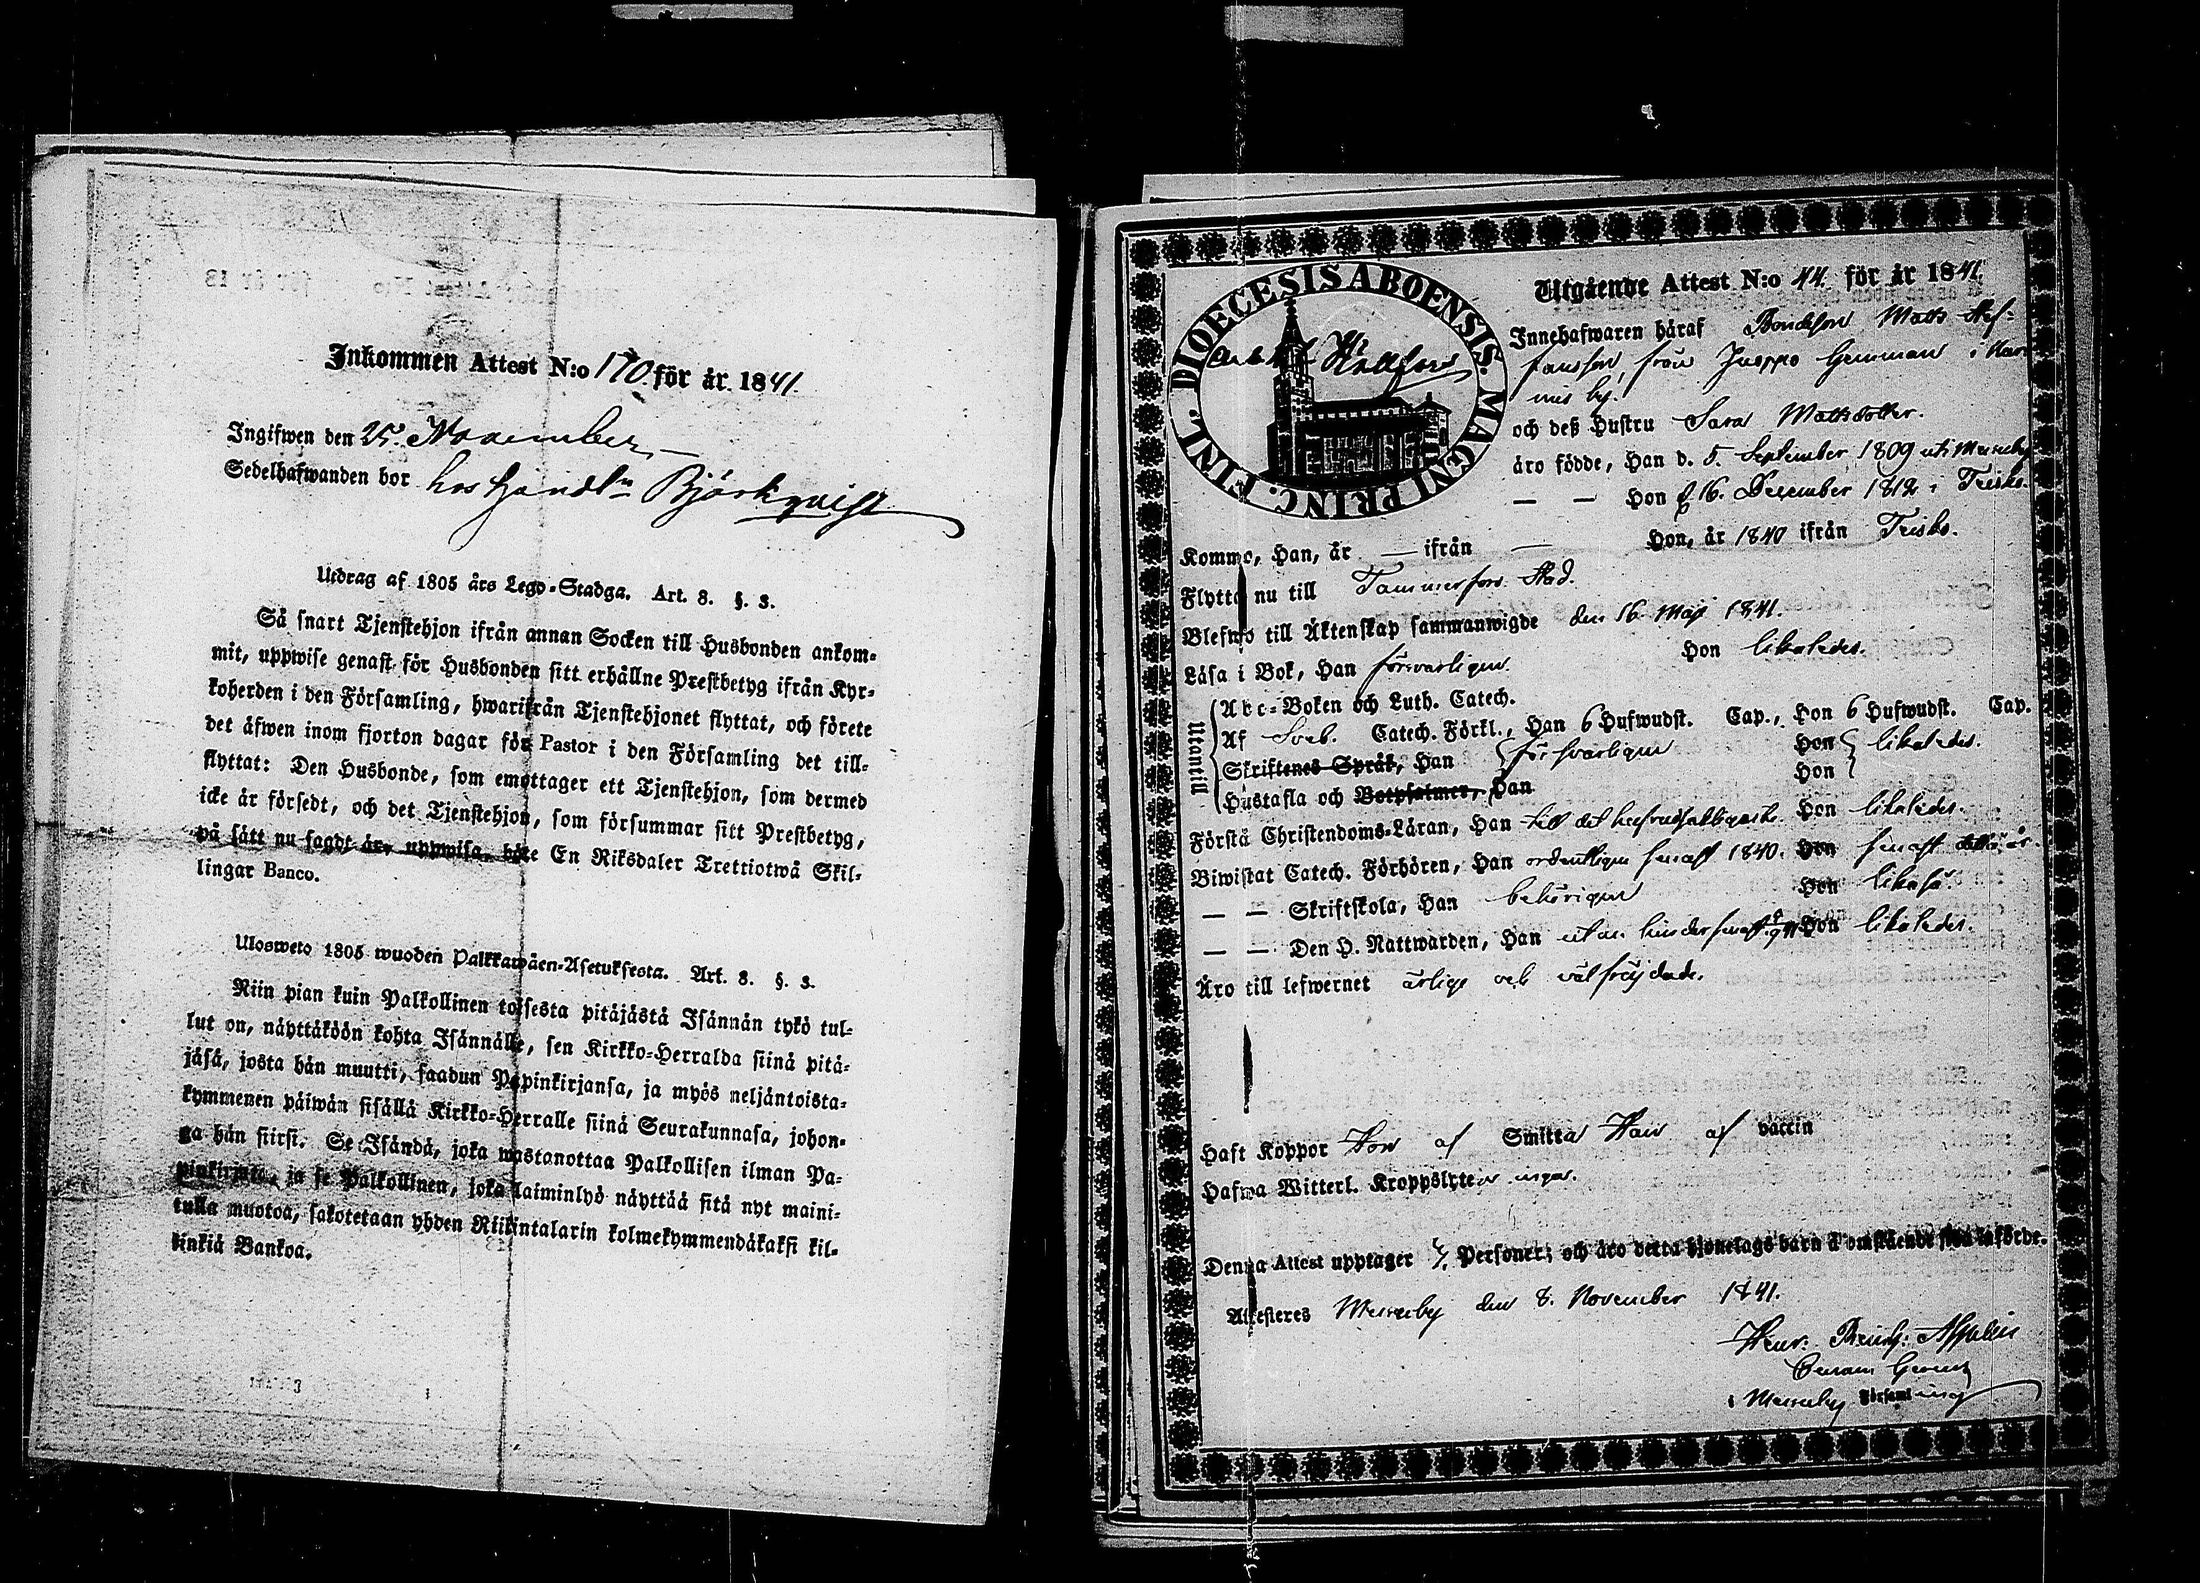 Inkommen Attest N:o 170. för år 1841.
Ingifwen den 25. November
Sedelhafwanden bor hos Handl:n Björkqvist
Utdrag af 1805 års Lego-Stadga. Art. 8. §. 3.
Så snart Tjenstehjon ifrån annan Socken till Husbonden ankom-
mit, uppwise genast för Husbonden sitt erhållne Prestbetyg ifrån Kyr-
koherden i den Församling, hwarifrån Tjenstehjonet flyttat, och förete
det äfwen inom fjorton dagar för Pastor i den Församling det till-
flyttat: Den Husbonde, som emottager ett Tjenstehjon, som dermed
icke är försedt, och det Tjenstehjon, som försummar sitt Prestbetyg,
på sätt nu sagdt är, uppwisa, böte En Riksdaler Trettiotwå Skil-
lingar Banco.
Ulosweto 1805 wuoden Palkkawäen-Asetuksesta. Art. 8. §. 3.
Niin pian kuin Palkollinen toisesta pitäjästä Isännän tykö tul-
lut on, näyttäköön kohta Isännälle, sen Kirkko-Herralda siinä pitä-
jäsä, josta hän muutti, saadun Papinkirjansa, ja myös neljäntoista-
kymmenen päiwän sisällä Kirkko-Herralle siinä Seurakunnasa, johon-
ga hän siirsi. Se Isändä, joka wastanottaa Palkollisen ilman Pa-
pinkirjata, ja se Palkollinen, joka laiminlyö näyttää sitä nyt maini-
tulla muotoa, sakotetaan yhden Riikintalarin kolmekymmendäkaksi kil-
linkiä Bankoa.
DIOECESIS ABOENSIS. MAGNI PRINC. FINL.
Utgående Attest N:o 44. för år 1841.
Innehafwaren häraf Bondeson Matts Stef-
fansson, från Juoppo Hemman i
by.
och deß Hustru Sara Mattsdotter.
äro födde, Han d. 5. September 1809 uti
— — Hon d. 16. December 1812 i
Kommo, Han, år — ifrån — Hon, år 1840 ifrån
Flytta nu till Tammerfors Stad.
Blefwo till Äktenskap sammanwigde den 16 Maj 1841.
Läsa i Bok, Han försvarligen. Hon likaledes.
Utantill
Abc-Boken och Luth. Catech.
Af Sveb. Catech. Förkl., Han 6 Hufwudst. Cap., Hon 6 Hufwudst. Cap.
Skriftenes Språk, Han försvarligen Hon likaledes.
Hustafla och Botpsalmer, Han Hon
Förstå Christendoms-Läran, Han till det Hon likaledes.
Biwistat Catech. Förhören, Han ordentligen senast 1840. Hon senast detta år.
— — Skriftskola, Han behörigen Hon likaså.
— — Den H. Nattwarden, Han utan hinder Hon likaledes.
Äro till lefwernet ärlige och välfräjdade.
Haft Koppor Hon af Smitta Han af vaccin
Hafwa Witterl. Kroppslyte inga.
Denna Attest upptager Personer; och äro detta hjonelags barn å omstående sida införde.
Attesteres den 8. November 1841.
Henr:
Församling